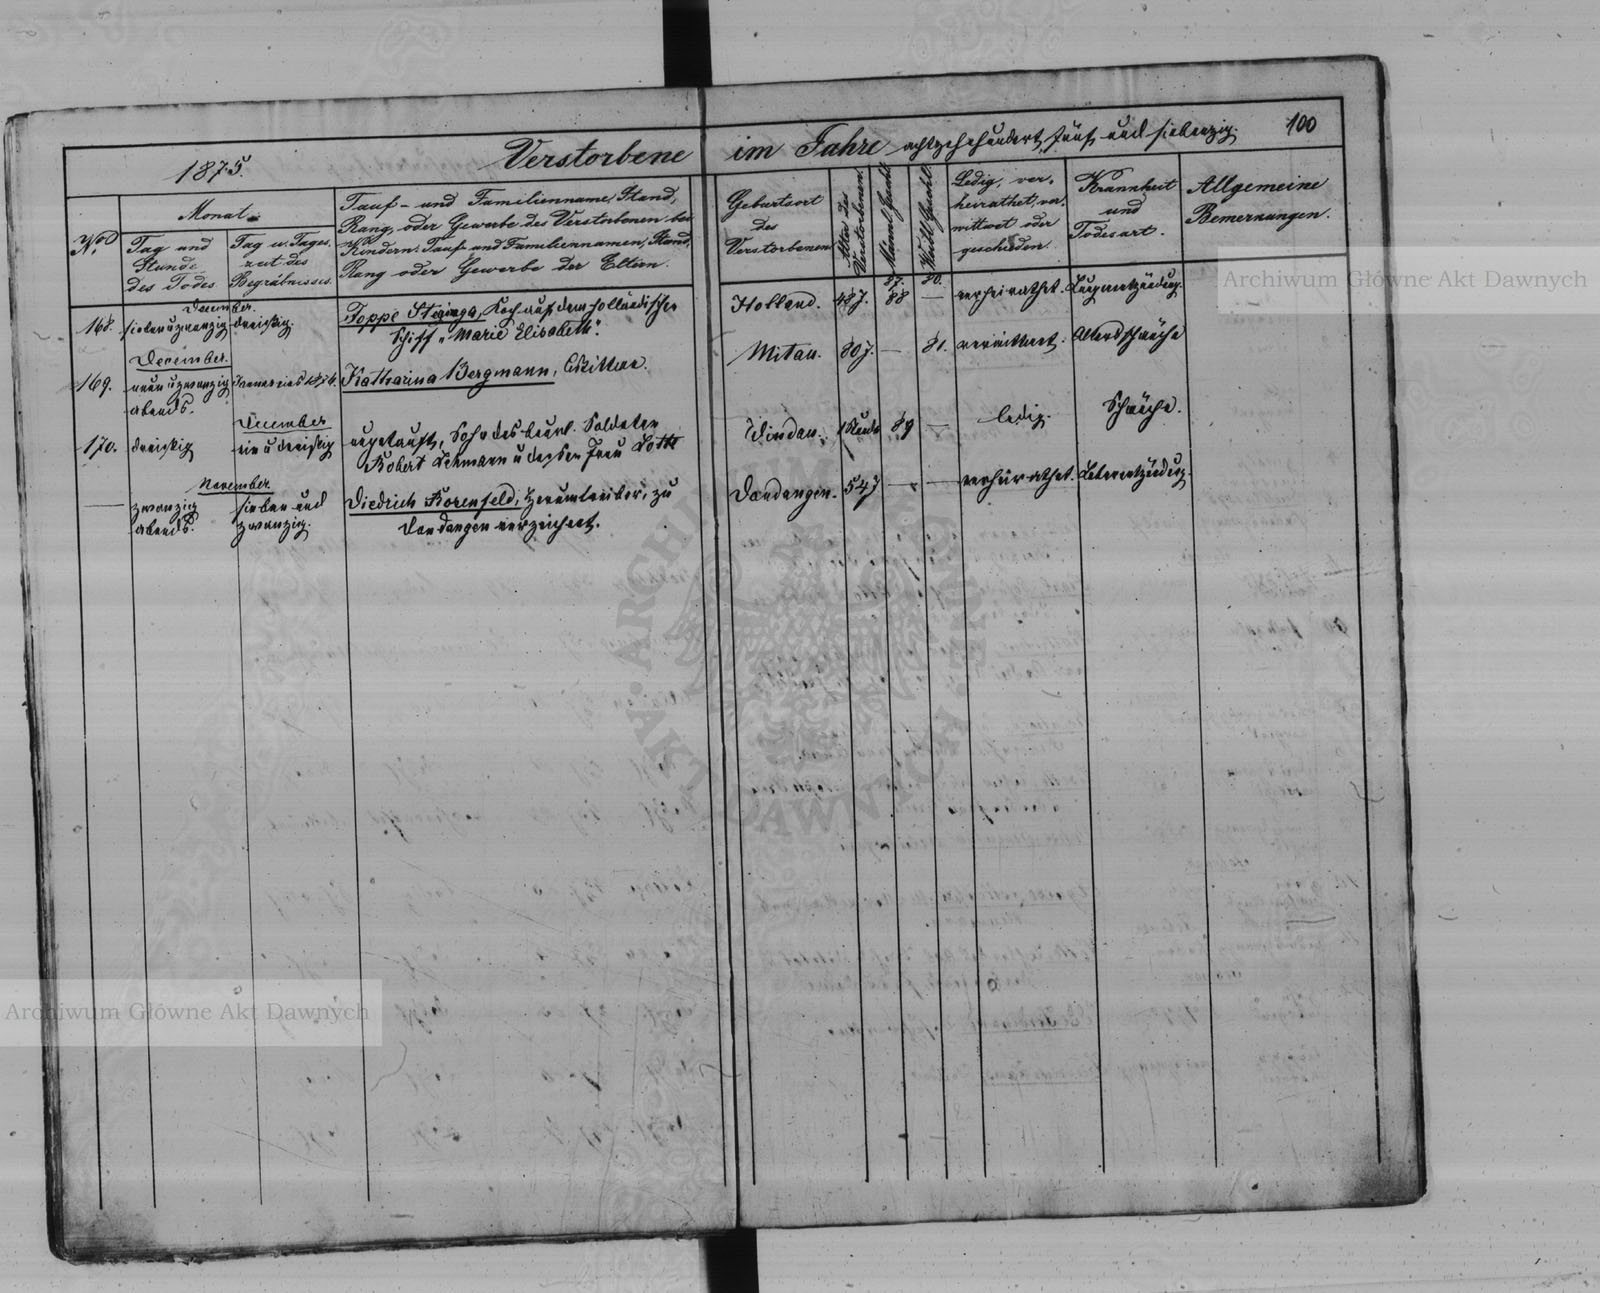 1875.
Verstorbene im Jahre achtzehnhundert fünf und siebenzig.
100
No
Monat
Tag und
Stunde
des Todes
Tag u. Tages-
zeit des
Begräbnisses.
Tauf- und Familienname, Stand,
Rang, oder Gewerbe des Verstorbenen bei
Kindern: Tauf- und Familiennamen, Stand,
Rang oder Gewerbe der Eltern.
Geburtsort
des
Verstorbenen
Alter des
Verstorbenen.
Männl. Geschl.
Weibl. Geschl.
Ledig, ver-
heirathet, ver-
wittwet oder
geschieden.
Krankheit
und
Todesart.
Allgemeine
Bemerkungen.
87. 80.
December.
168. sieben u zwanzig dreißig. Foppe Koch auf dem holländischen Holland. 48 J. 88 — verheirathet. Lungenentzündung.
Schiff „Marie Elisabeth“.
December.
169. neun u zwanzig Katharina Bergmann, Wittwe. Mitau. 80 J. — 81. verwittwet. Altersschwäche
abends.
December
170. dreißig ein u dreißig ungetauft, Sohn des beurl. Soldaten Windau. 1 Stunde 89 — ledig. Schwäche.
Robert Lehmann u dessen Frau Lotte
November
— zwanzig sieben und Diedrich Rosenfeld, zu Dondangen. 54 J — — verheirathet. Leberentzündung.
abends. zwanzig. Dondangen verzeichnet.
Archiwum Główne Akt Dawnych
Archiwum Główne Akt Dawnych
ARCHIWUM GŁÓWNE AKT DAWNYCH